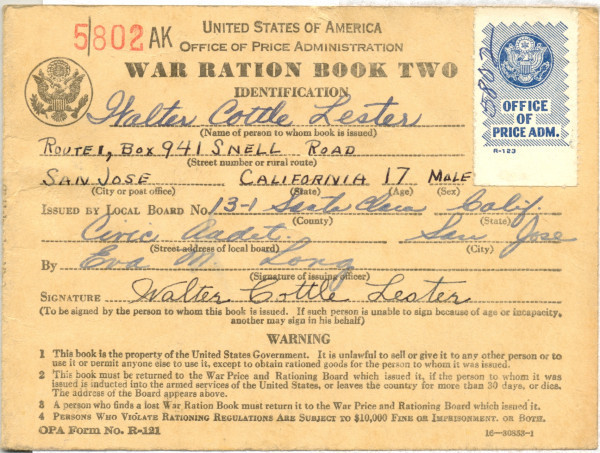 5/802 AK
UNITED STATES OF AMERICA
OFFICE OF PRICE ADMINISTRATION
WAR RATION BOOK TWO
IDENTIFICATION
OFFICE
OF
PRICE ADM.
R-123
Walter Cottle Lester
(Name of person to whom book is issued)
ROUTE 1, BOX 941 SNELL ROAD
(Street number or rural route)
SAN JOSE CALIFORNIA 17 MALE
(City or post office) (State) (Age) (Sex)
ISSUED BY LOCAL BOARD NO. 13-1 Santa Clara Calif.
(County) (State)
Civic Audit. San Jose
(Street address of local board) (City)
By Eva M. Long
(Signature of issuing officer)
SIGNATURE Walter Cottle Lester
(To be signed by the person to whom this book is issued. If such person is unable to sign because of age or incapacity,
another may sign in his behalf)
WARNING
1 This book is the property of the United States Government. It is unlawful to sell or give it to any other person or to
use it or permit anyone else to use it, except to obtain rationed goods for the person to whom it was issued.
2 This book must be returned to the War Price and Rationing Board which issued it, if the person to whom it was
issued is inducted into the armed services of the United States, or leaves the country for more than 30 days, or dies.
The address of the Board appears above.
3 A person who finds a lost War Ration Book must return it to the War Price and Rationing Board which issued it.
4 PERSONS WHO VIOLATE RATIONING REGULATIONS ARE SUBJECT TO $10,000 FINE OR IMPRISONMENT, OR BOTH.
OPA FORM No. R-121
16-30853-1